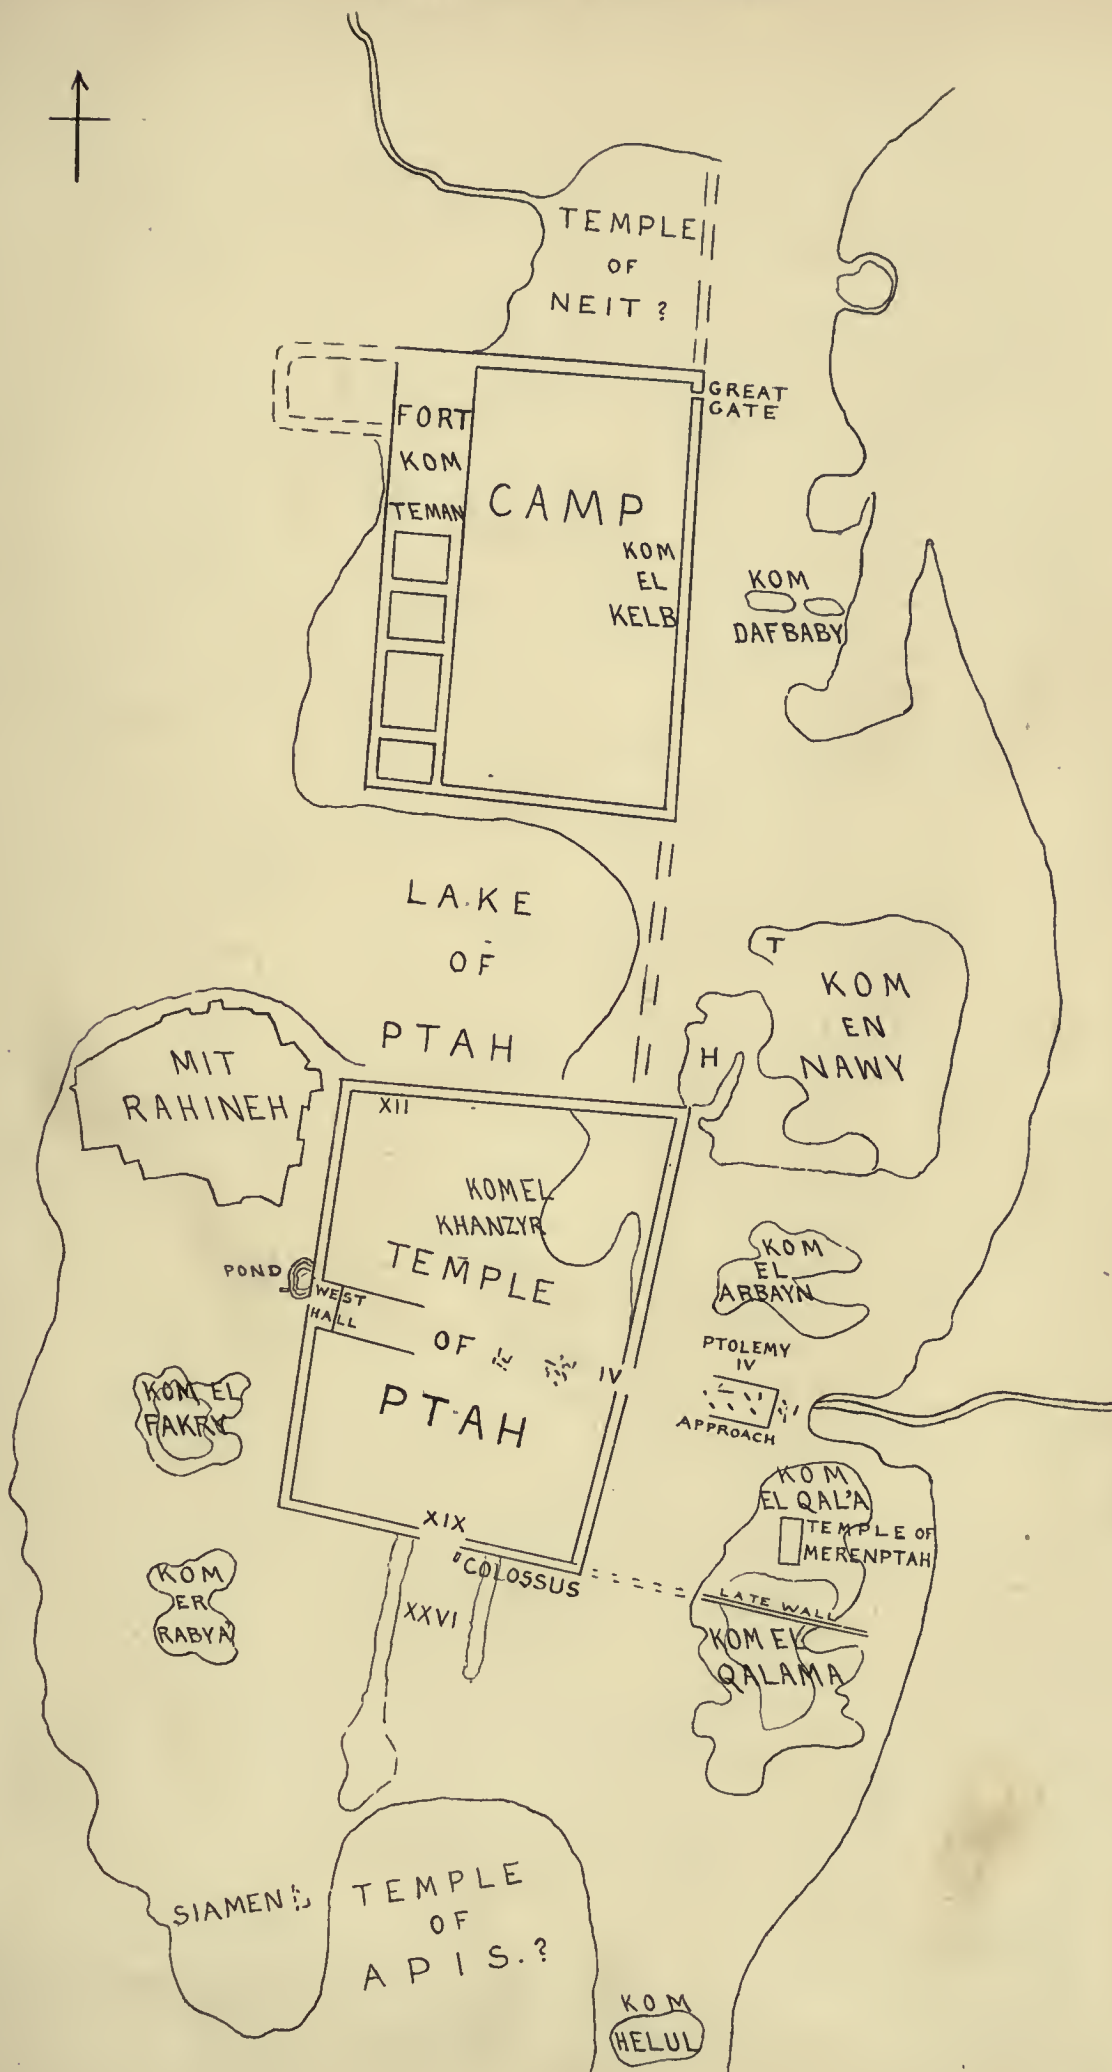 TEMPLE
OF
NEIT ?
GREAT
GATE
FORT
KOM
TEMAN
CAMP
KOM
EL
KELB
KOM
DAFBABY
LAKE
OF
PTAH
T
KOM
EN
NAWY
H
MIT
RAHINEH
XII
KOM EL
KHANZYR
TEMPLE
OF
PTAH
POND
WEST
HALL
IV
KOM
EL
ARBAYN
PTOLEMY
IV
APPROACH
KOM EL
FAKRY
KOM
EL QAL'A
TEMPLE OF
MERENPTAH
XIX
COLOSSUS
LATE WALL
KOM
ER
RABYA'
XXVI
KOM EL
QALAMA
SIAMEN
TEMPLE
OF
APIS.?
KOM
HELUL